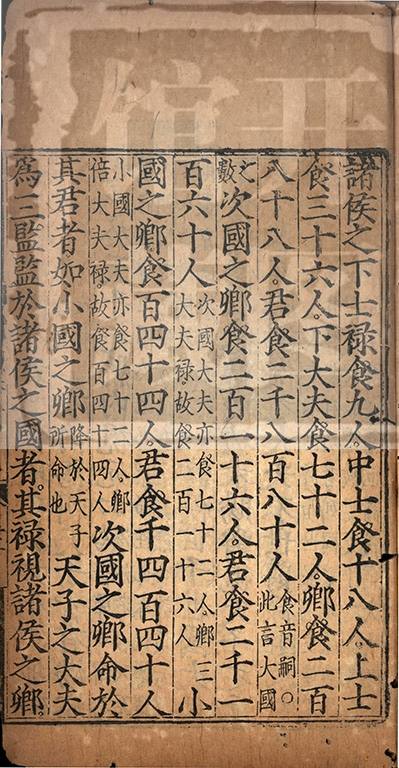 諸侯之下士禄食九人。中士食十八人。上士
食三十六人。下大夫食七十二人。卿食二百
八十八人。君食二千八百八十人食音嗣○此言大國
之數次國之卿食二百一十六人。君食二千一
百六十人次國大夫亦食七十二人。卿三大夫禄故食二百一十六人小
國之卿食百四十四人。君食千四百四十人
小國大夫亦食七十二人。卿倍大夫禄故食百四十四人次國之卿命於
其君者如小國之卿降於天子所命也天子之大夫
爲三監監於諸侯之國者。其禄視諸侯之卿。